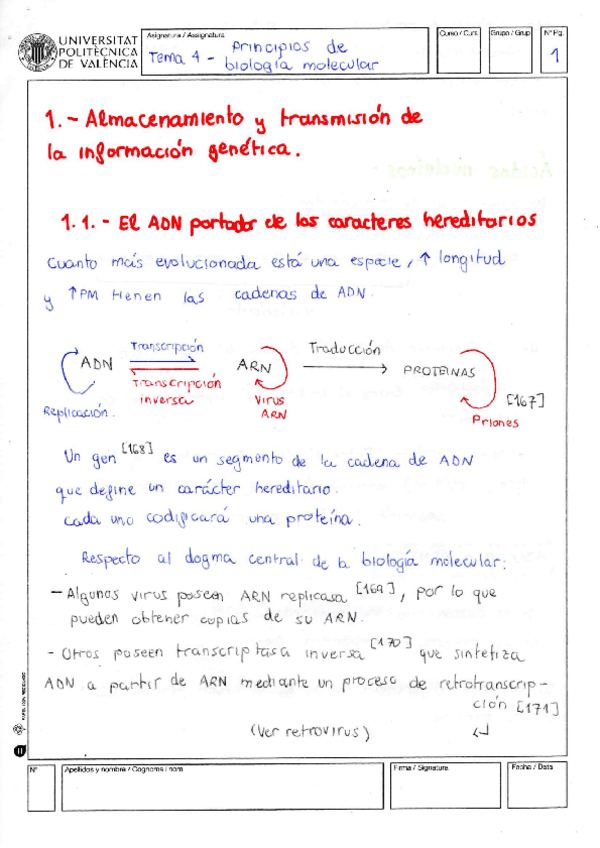 UNIVERSITAT
POLITÈCNICA
DE VALÈNCIA
Asignatura / Assignatura
Tema 4 - Principios de
biología molecular
Curso / Curs
Grupo / Grup
Nº Pg.
1
1.- Almacenamiento y transmisión de
la información genética.
1.1.- El ADN portador de los caracteres hereditarios
Cuanto más evolucionada está una especie, ↑ longitud
y ↑PM tienen las cadenas de ADN.
Transcripción
Traducción
ADN
ARN
PROTEINAS
Transcripción
inversa
Replicación.
Virus
ARN
[167]
Priones
Un gen [168] es un segmento de la cadena de ADN
que define un carácter hereditario.
cada uno codificará una proteína.
Respecto al dogma central de la biología molecular:
- Algunos virus poseen ARN replicasa [169], por lo que
pueden obtener copias de su ARN.
- Otros poseen transcriptasa inversa [170] que sintetiza
ADN a partir de ARN mediante un proceso de retrotranscrip-
ción [171]
(Ver retrovirus)
Nº
Apellidos y nombre / Cognoms i nom
Firma / Signatura
Fecha / Data